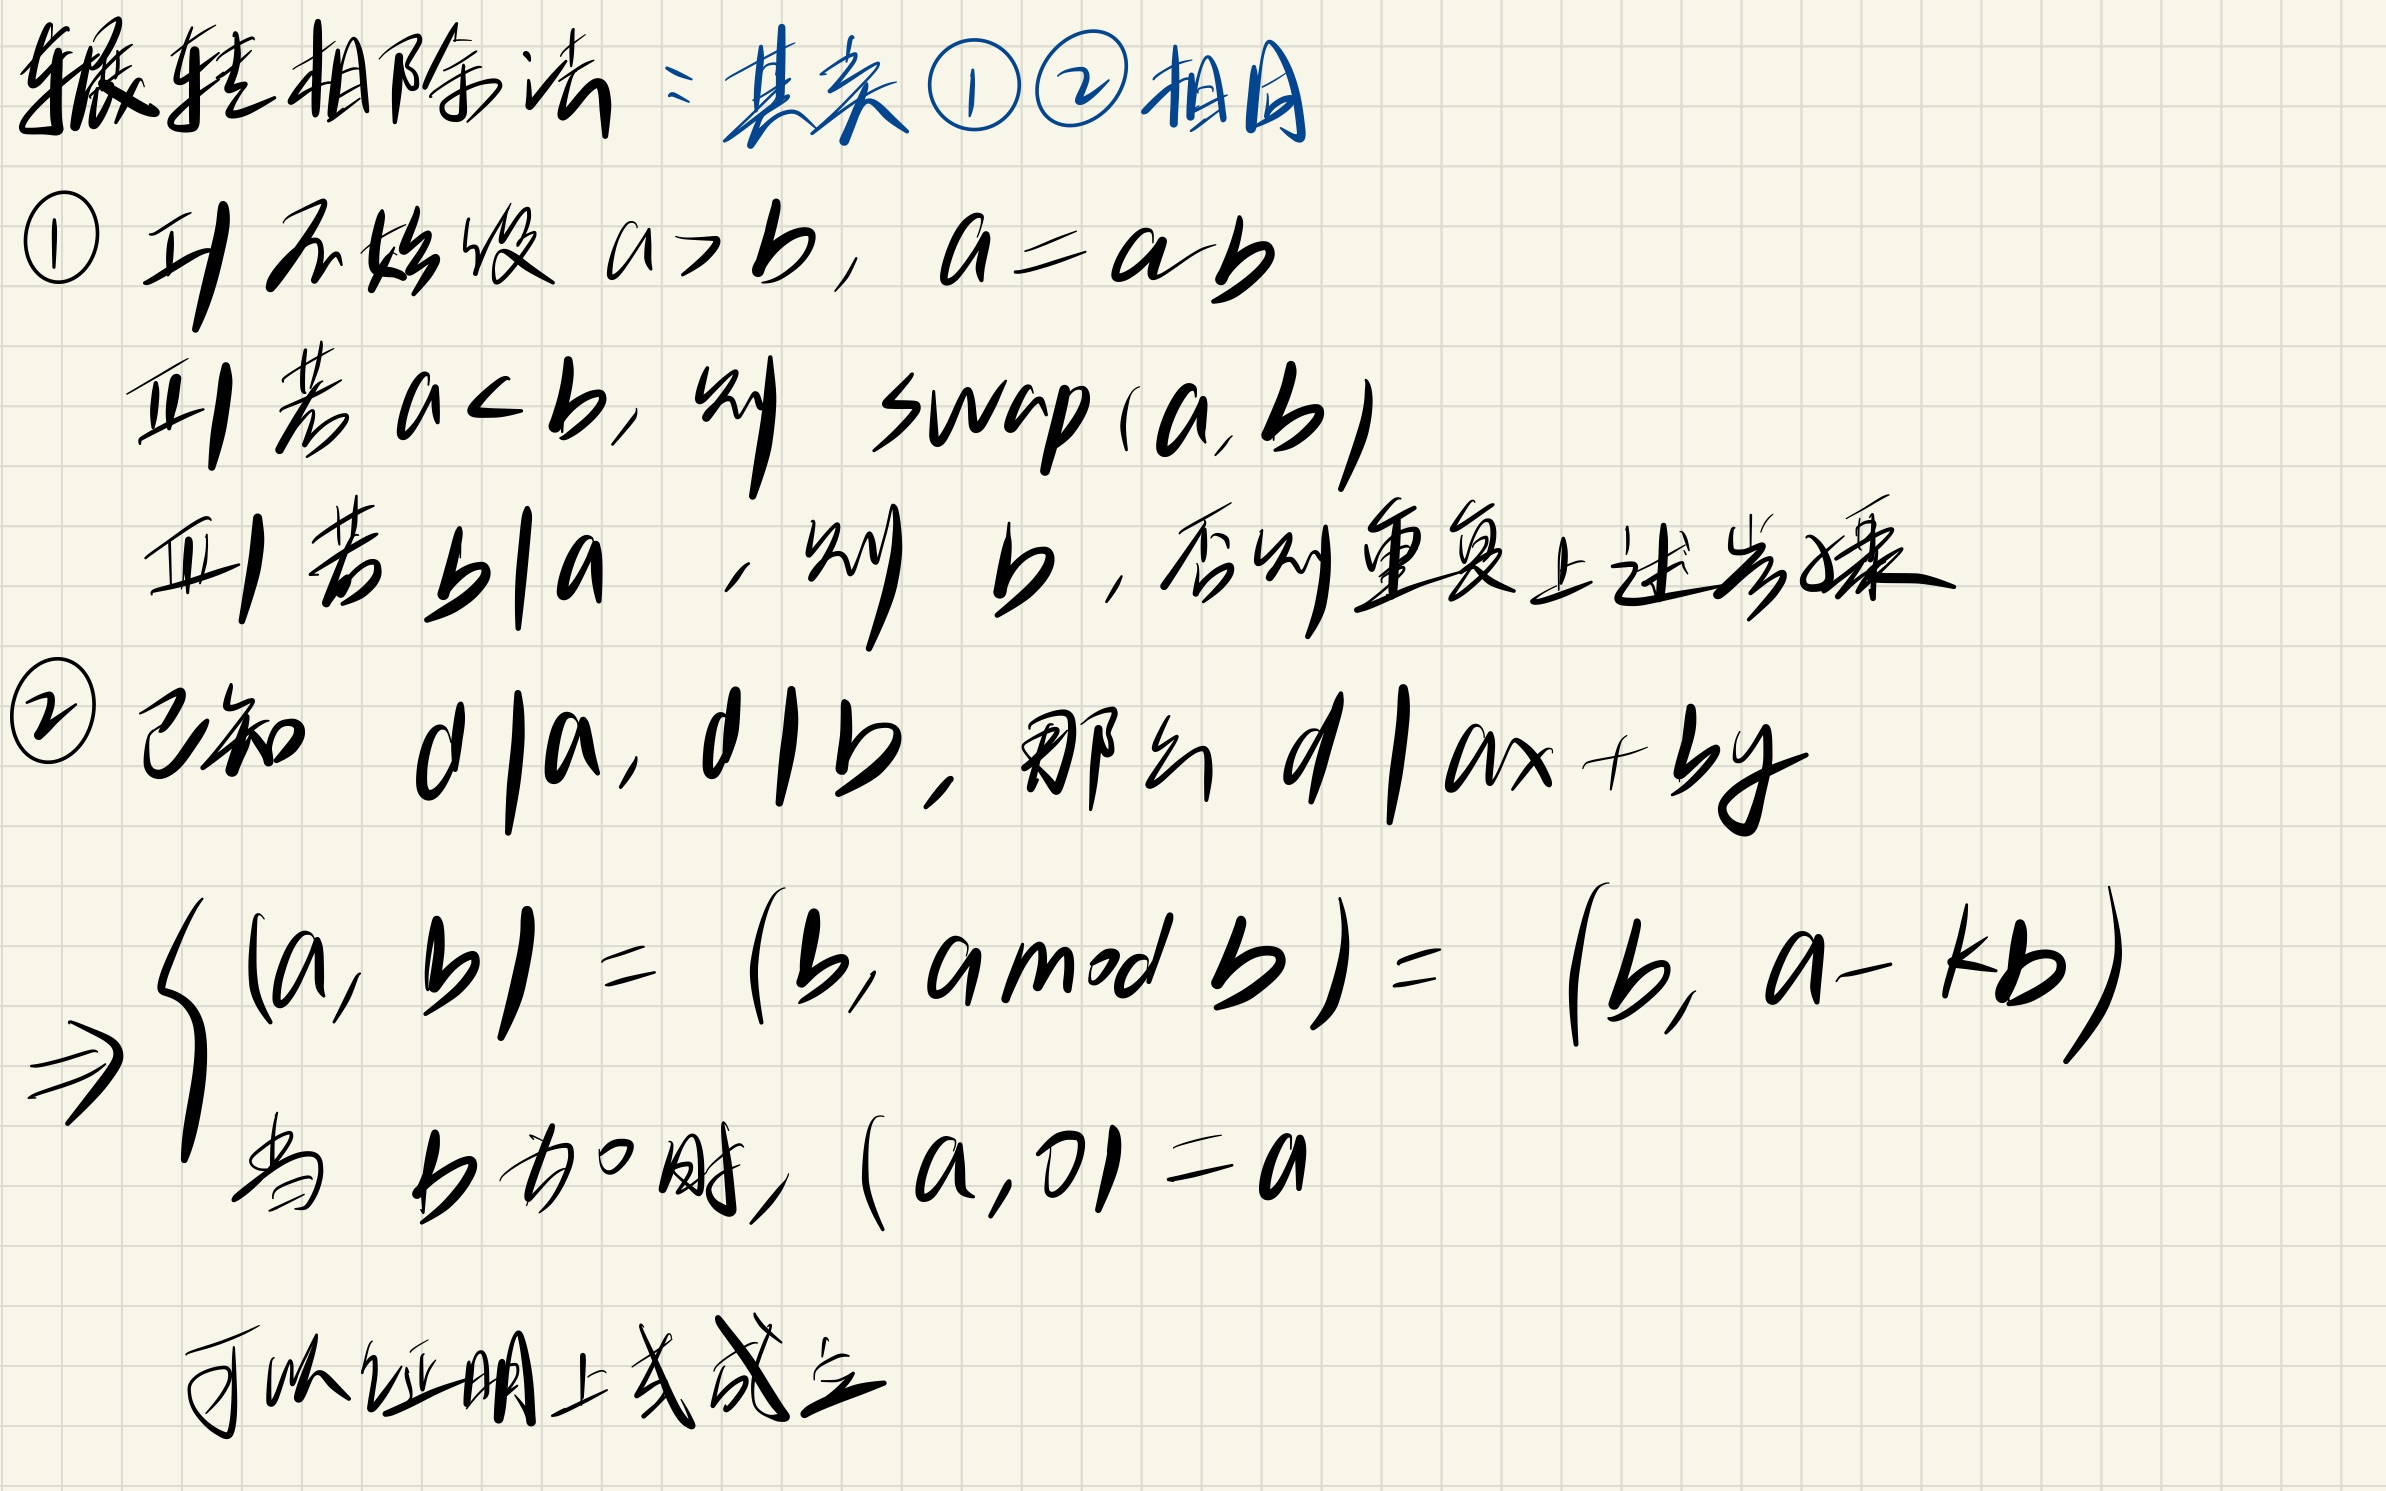 辗转相除法：其实①②相同
① I) 不妨设 a>b, a=a-b
II) 若 a<b, 则 swap(a,b)
III) 若 b|a, 则 b, 否则重复上述步骤
② 已知 d|a, d|b, 那么 d|ax+by
⇒ { (a, b) = (b, a mod b) = (b, a-kb)
当 b 为 0 时, (a,0)=a
可以证明上式成立